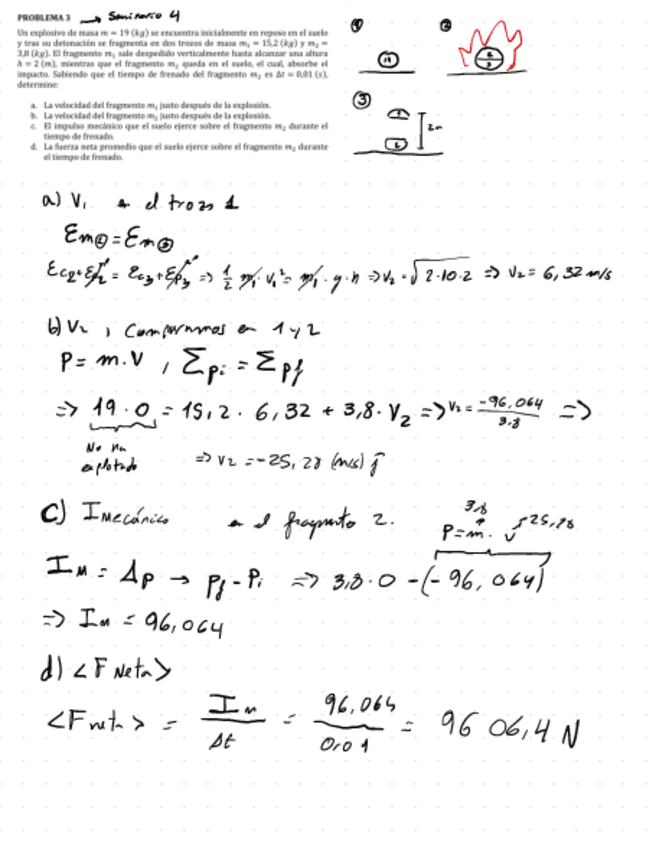 PROBLEMA 3 → Seminario 4
Un explosivo de masa m = 19 (kg) se encuentra inicialmente en reposo en el suelo
y tras su detonación se fragmenta en dos trozos de masa m₁ = 15,2 (kg) y m₂ =
3,8 (kg). El fragmento m₁ sale despedido verticalmente hasta alcanzar una altura
h = 2 (m), mientras que el fragmento m₂ queda en el suelo, el cual, absorbe el
impacto. Sabiendo que el tiempo de frenado del fragmento m₂ es Δt = 0,01 (s),
determine:
a. La velocidad del fragmento m₁ justo después de la explosión.
b. La velocidad del fragmento m₂ justo después de la explosión.
c. El impulso mecánico que el suelo ejerce sobre el fragmento m₂ durante el
tiempo de frenado.
d. La fuerza neta promedio que el suelo ejerce sobre el fragmento m₂ durante
el tiempo de frenado.
① ②
19
③
1
2 2m
a) V₁ en el trozo 1
Em② = Em③
Ec₂+Ep₂ = Ec₃+Ep₃ => 1/2 m₁ · V₁² = m₁ · g · h => V₂ = √2·10·2 => V₂ = 6,32 m/s
b) V₂ , Comparamos en 1 y 2
P = m.V , Σpi = Σpf
=> 19 · 0 = 15,2 · 6,32 + 3,8 · V₂ => V₂ = -96,064 / 3,8 =>
No ha
explotado => V₂ = -25,28 (m/s) ĵ
c) I Mecánico en el fragmento 2.
3,8
P = m · v 25,28
I M = Δp → Pf - Pi => 3,8 · 0 - (-96,064)
=> I M = 96,064
d) <F Neta>
<Fneta> = I M / Δt = 96,064 / 0,01 = 9606,4 N